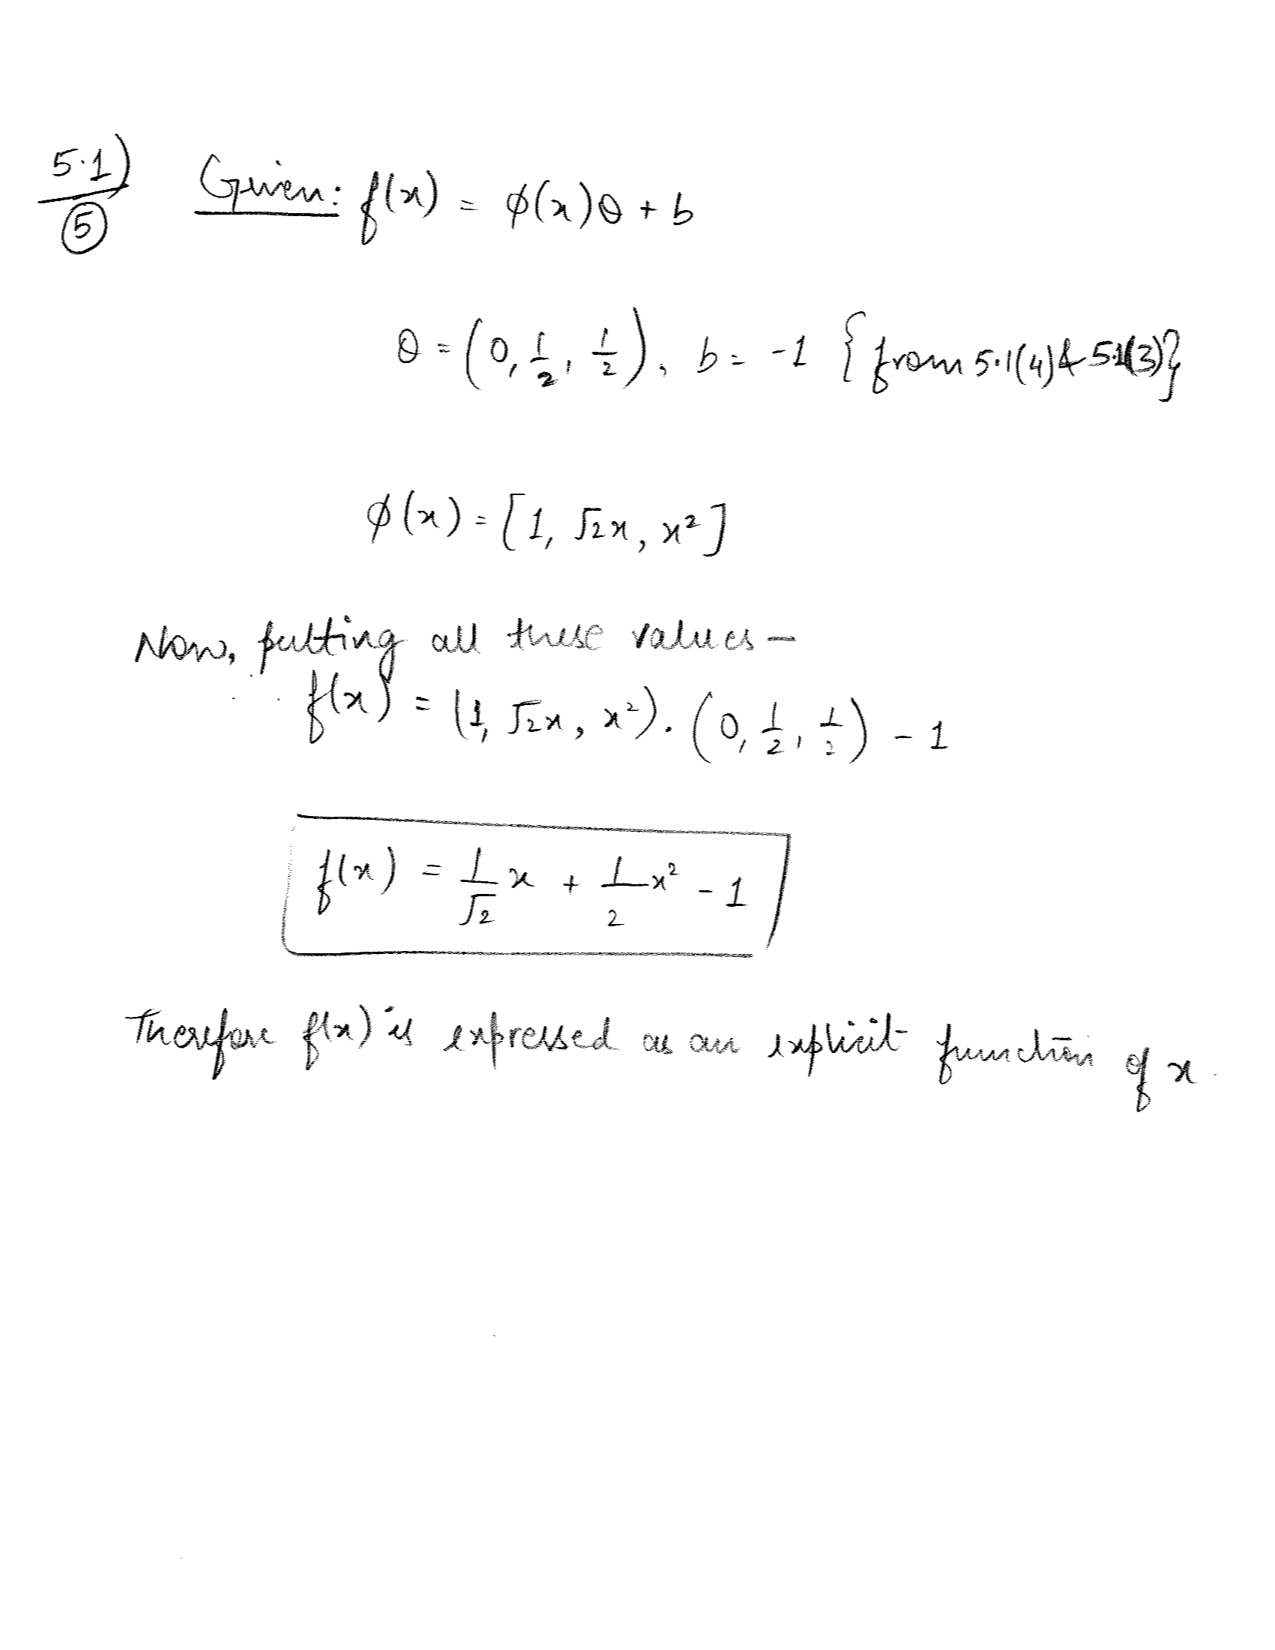 5.1) Given: f(x) = φ(x)θ + b
⑤
θ = (0, 1/2, 1/2), b = -1 {from 5.1(4) & 5.1(3)}
φ(x) = [1, √2x, x²]
Now, putting all these values —
f(x) = (1, √2x, x²). (0, 1/2, 1/2) - 1
f(x) = 1/√2 x + 1/2 x² - 1
Therefore f(x) is expressed as an explicit function of x.